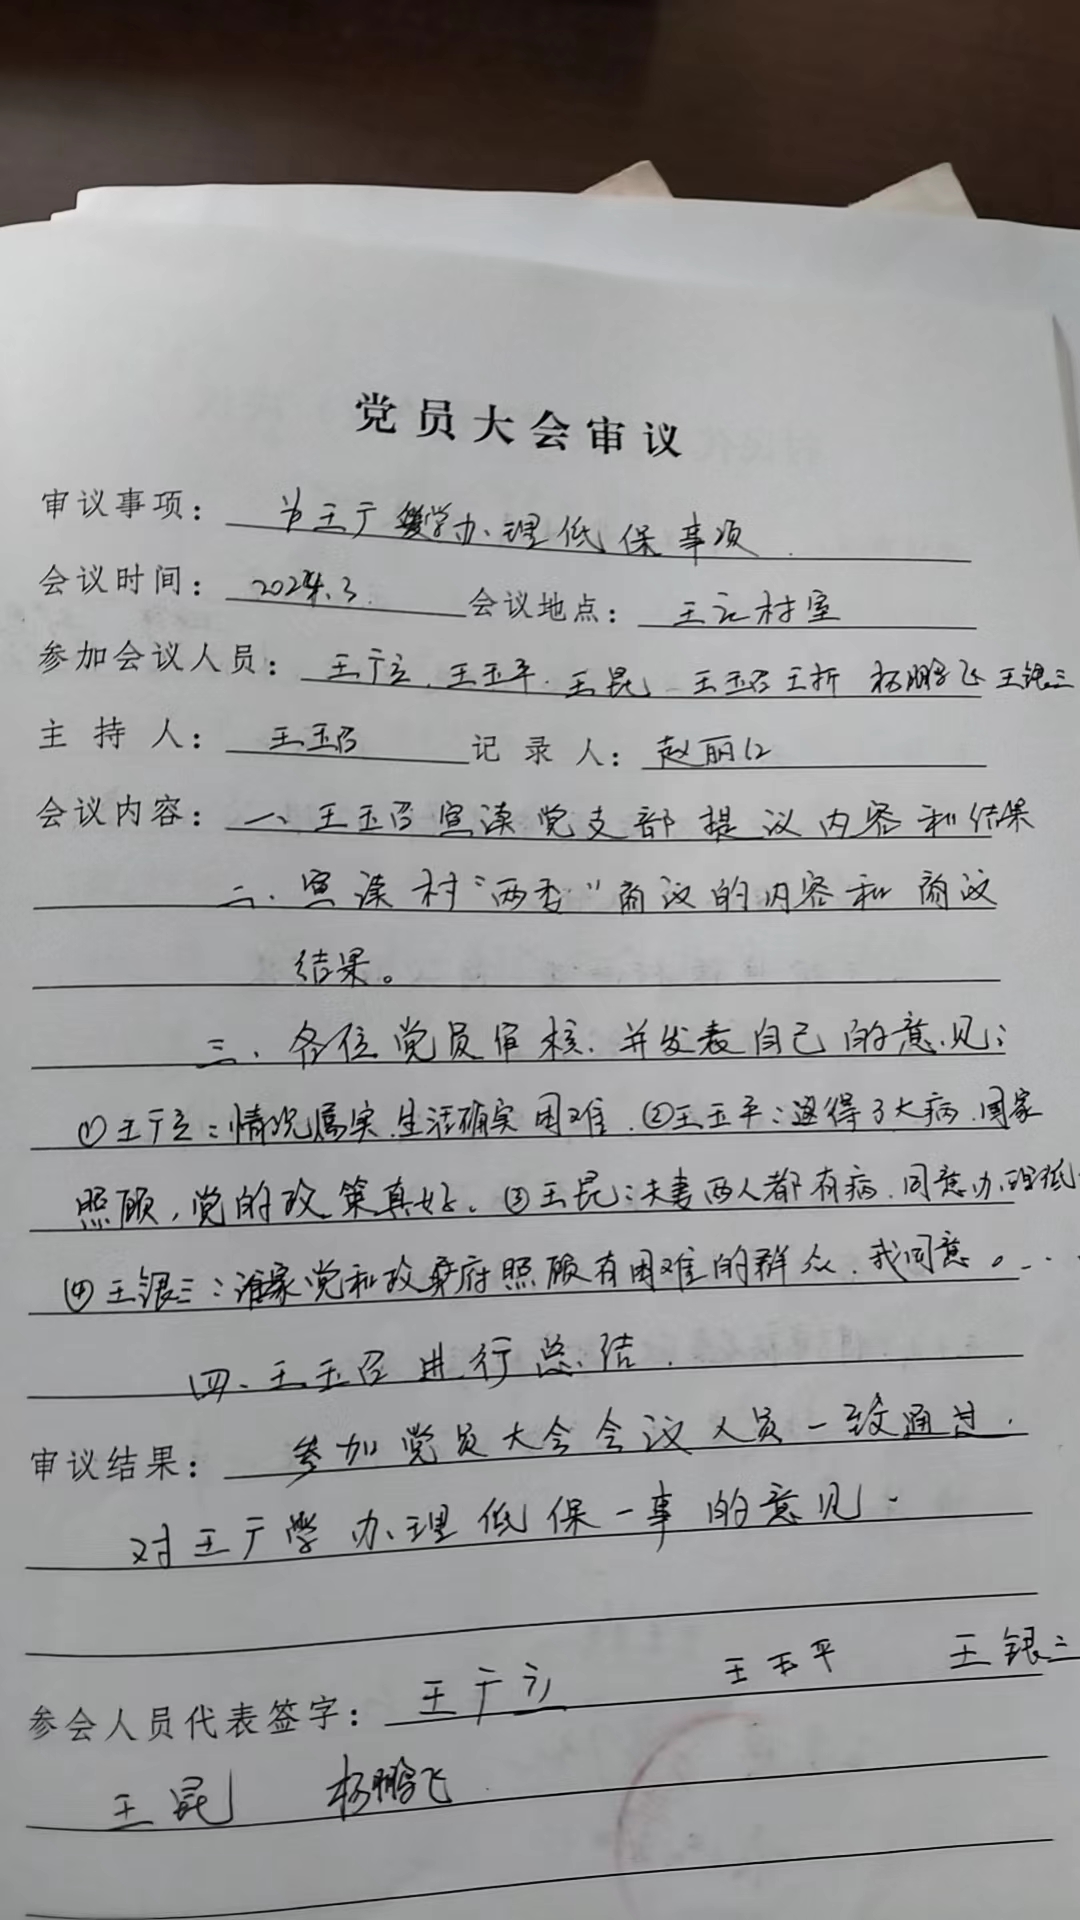 党员大会审议
审议事项： 为王广学办理低保事项．
会议时间： 2024.3. 会议地点： 王 村室
参加会议人员： 王广立．王玉平．王昆．王玉召 王折 杨鹏飞 王银三
主持人： 王玉召 记录人： 赵丽
会议内容： 一、王玉召宣读党支部提议内容和结果
二、宣读村“两委”商议的内容和商议
结果。
三、各位党员审核，并发表自己的意见：
①王广立：情况属实，生活确实困难．②王玉平：逼得了大病，国家
照顾，党的政策真好。③王昆：夫妻两人都有病，同意办理低
④王银三：谁家党和政府照顾有困难的群众，我同意。...
四、王玉召进行总结．
审议结果： 参加党员大会会议人员一致通过．
对王广学办理低保一事的意见．
参会人员代表签字： 王广立 王玉平 王银三
王昆 杨鹏飞